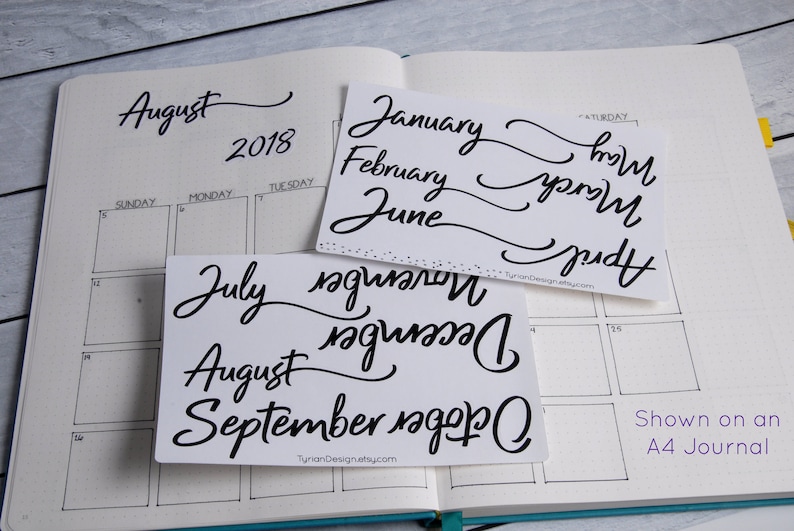 August
2018
SUNDAY MONDAY TUESDAY SATURDAY
5 6 7
12
19
26
25
January
May
February
March
June
April
TyrianDesign.etsy.com
July
November
December
August
September
October
TyrianDesign.etsy.com
Shown on an
A4 Journal